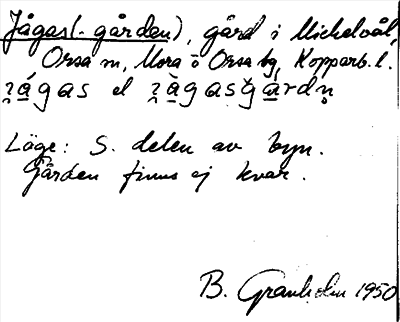 Jågas(-gården), gård i Michelvål,
Orsa sn, Mora o Orsa tg, Kopparb. l.
ágas el
Läge: S. delen av byn.
Gården finns ej kvar.
B. Granholm 1950